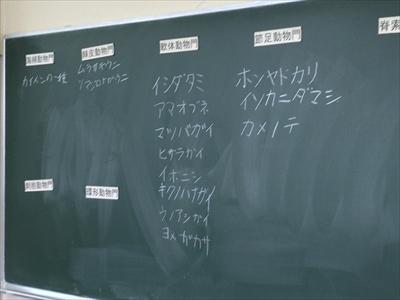 海綿動物門
カイメンの一種
棘皮動物門
ムラサキウニ
軟体動物門
イシダタミ
アマオブネ
マツバガイ
ヒザラガイ
イボニシ
キクノハナガイ
ウノアシガイ
ヨメガカサ
節足動物門
ホンヤドカリ
イソカニダマシ
カメノテ
脊索
刺胞動物門
環形動物門